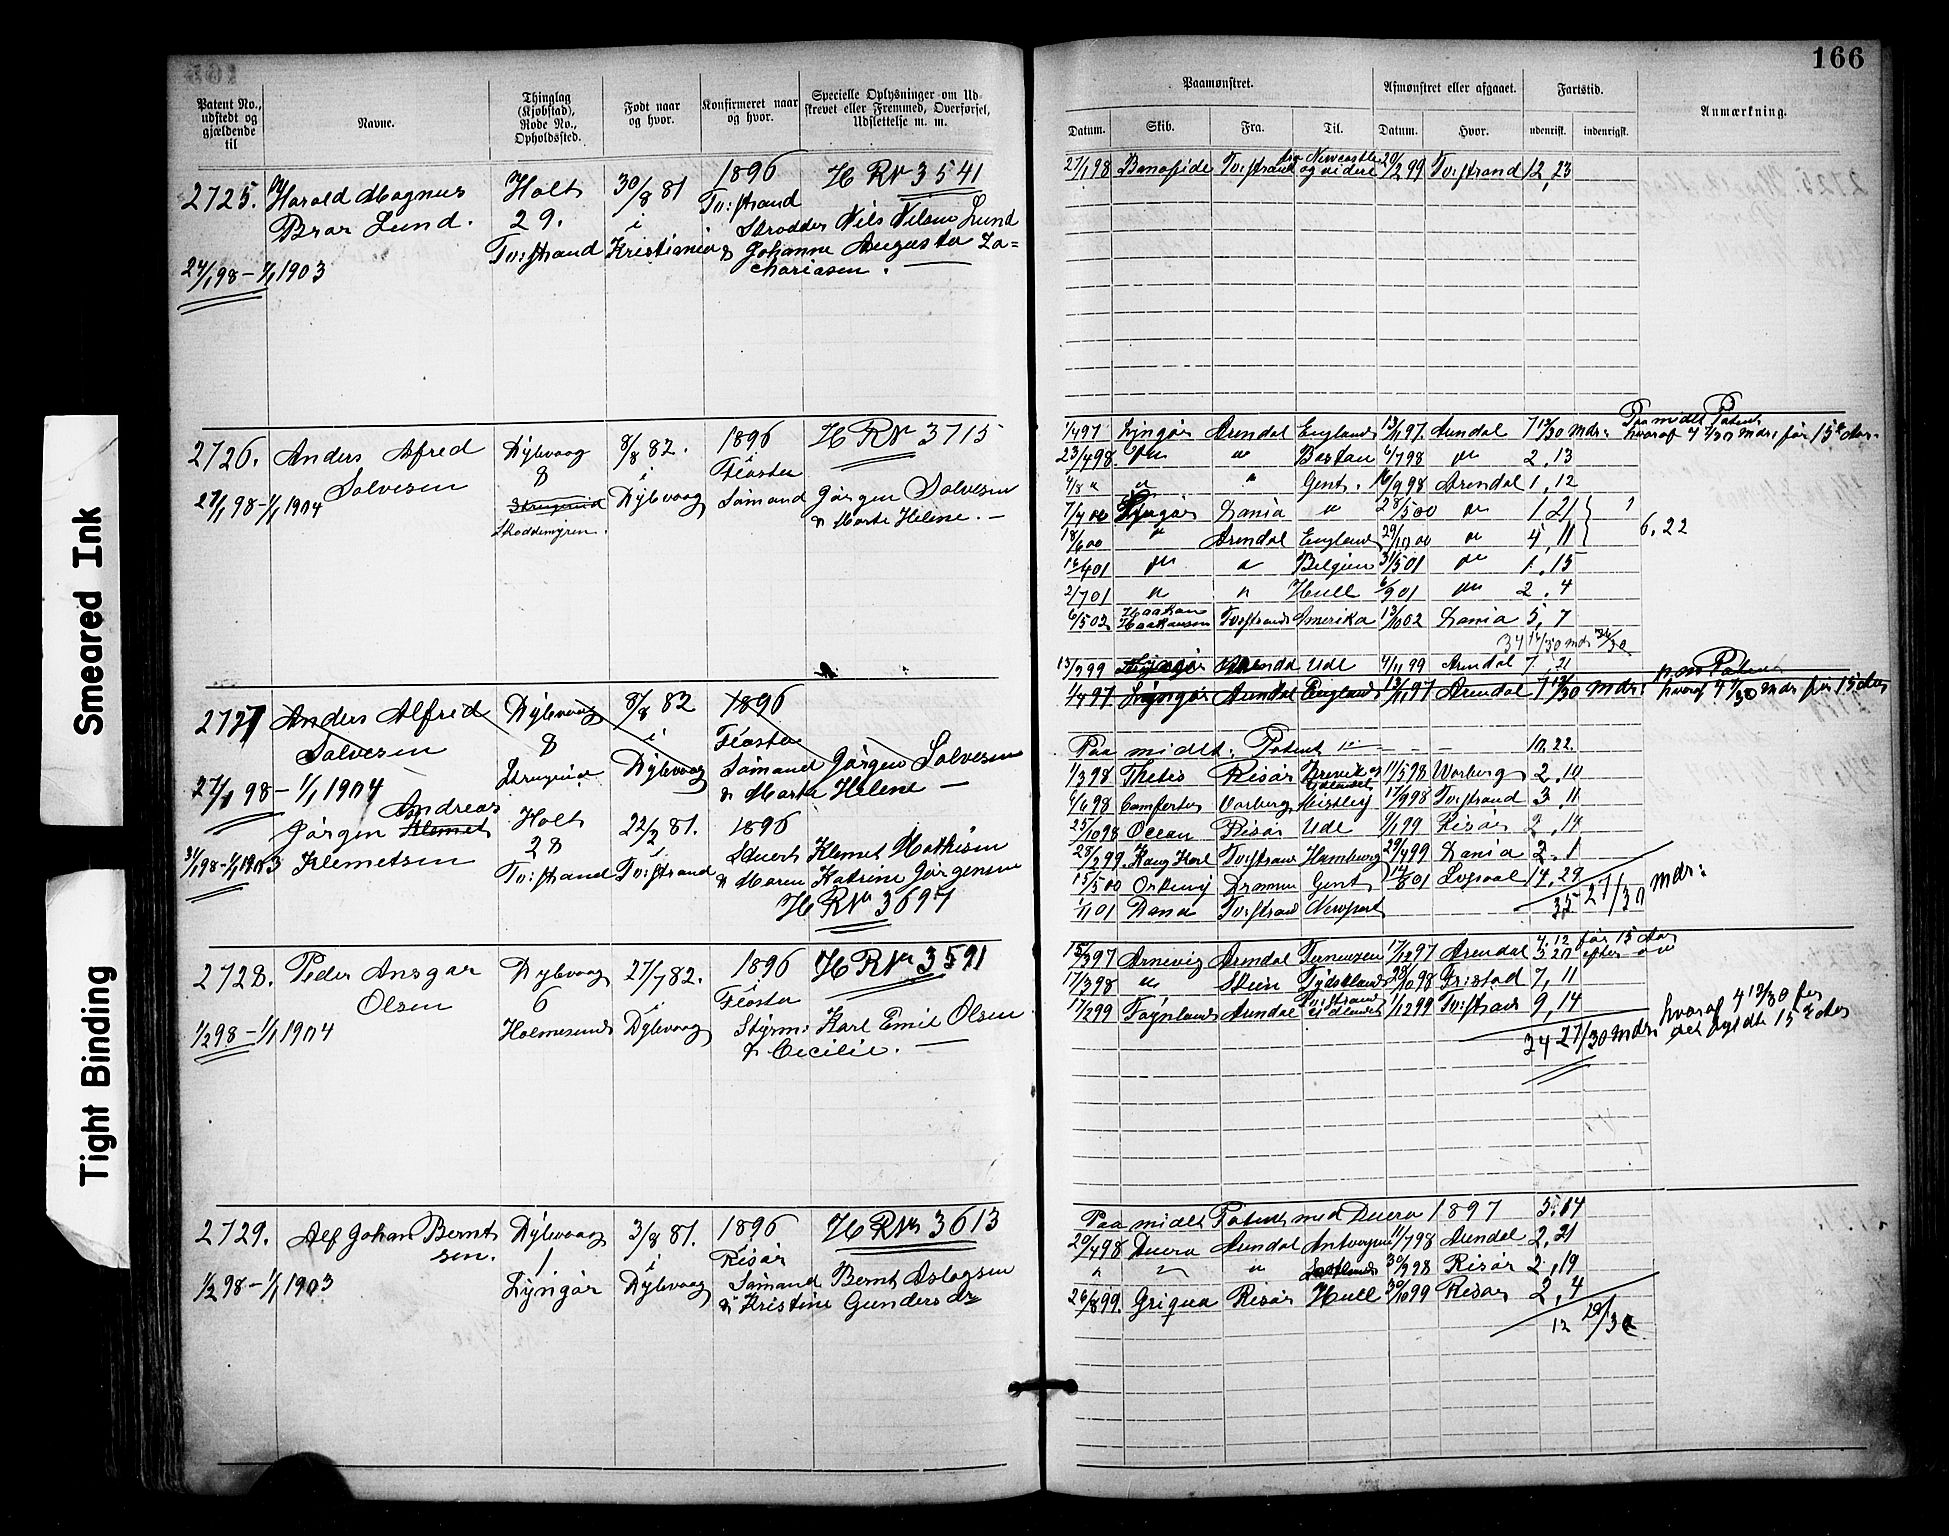 Smeared Ink
Tight Binding
166
Patent No., udstedt og gjældende til
Navne.
Thinglag (Kjøbstad), Rode No., Opholdssted.
Født naar og hvor.
Konfirmeret naar og hvor.
Specielle Oplysninger om Udskrevet eller Fremmed, Overførsel, Udslettelse m. m.
Paamønstret.
Afmønstret eller afgaaet.
Fartstid.
Anmærkning.
Datum.
Skib.
Fra.
Til.
Datum.
Hvor.
udenrigst.
indenrigst.
2725. Harald Magnus Holt 30/8 81 1896 H R Nr 3541
Brar Lund. 29. i Tvedestrand Skrædder Nils Nilsen Lund
Tv:strand Kristiania & Johanne Augusta Za=
24/1 98 - 1/1 1903 chariasen.
27/1 98 Bonafide Tv:strand Newcastle og videre 20/2 99 Tv:strand 12, 23
2726. Anders Alfred Dybvaag 8/8 82. 1896 H R Nr 3715
Salvesen 8 i Flosta
27/1 98 - 1/1 1904 Dybvaag Sømand Jørgen Salvesen
Skoddemyren. & Marte Helene. —
Paa midlt Patent
1/4 97 Lyngør Arendal England 13/11 97. Arendal 7 12/30 mdr: hvoraf 4 7/30 mdr: før 15de Aar.
23/4 98. do " Boston 6/7 98 do 2. 13
4/8 " " " Gent. 16/9 98 Arendal 1. 12
7/4 00 Lyngør Larvia " 28/5 00 do 1, 21
18/6 00 " Arendal England 29/10 00 do 4, 11 6. 22
16/4 01 do " Belgien 31/5 01 do 1. 15
2/7 01 " " Hull 6/9 01 do 2. 4
6/5 02 Haakon Haakansen Tvedstrand Amerika 13/10 02 Larvia 5, 7
34 14/30 mdr
13/3 99 Lyngør Arendal Ude 4/11 99 Arendal 7. 21
2727 Anders Alfred Dybvaag 8/8 82 1896
Salvesen 8 i Flosta
Dybvaag Sømand Jørgen Salvesen
27/1 98 - 1/1 1904 & Marte Helene —
1/4 97 Lyngør Arendal England 13/11 97 Arendal 7 12/30 mdr: hvoraf 4 7/30 mdr før 15 Aar
Andreas
Jørgen Klemet Holt 22/2 81. 1896
31/1 98 - 1/1 1903 Klemetsen 28 i Stuert Klemet Mathisen
Tv:strand Tv:strand & Maren Katrine Jørgensen
H R Nr 3697
Paa midlt. Patent — — — 10. 22.
1/3 98 Thetis Risør Brevik og 11/5 98 Warberg 2, 10
4/6 98 Comforten Varberg 17/9 98 Tv:strand 3, 11
25/10 98 Ocean Risør Ude 9/1 99 Risør 2, 14
28/2 99. Kong Karl Tv:strand Hamburg 29/4 99 Larvia 2. 1
15/5 00 Orkenij Drammen Gent 01 14. 29
01 Dana Tv:strand Newport 35 27/30 mdr:
2728. Peder Ansgar Dybvaag 27/7 82. 1896 H R Nr 3591
Olsen 6 i Flosta
1/2 98 - 1/1 1904 Holmesund Dybvaag Styrm: Karl Emil Olsen
& Cecilie. —
15/3 97 Arnevig Arendal Terneuzen 17/12 97 Arendal 4. 12 før 15 Aar
5 20 efter
17/3 98 " Skien Tydskland 28/10 98 Fristad 7, 11
17/2 99 Føynland Arendal Tv:strand 1/12 99 Tv:strand 9, 14
34 27/30 mdr: hvoraf 4 12/30 før
det fyldte 15de Aar
2729. Alf Johan Berntsen. Dybvaag 3/8 81. 1896 H R Nr 3613
1 i Risør
1/2 98 - 1/1 1903 Lyngør Dybvaag Sømand Bernt Aslagsen
& Kristine Gundersdr
Paa midlt Patent med Duero 1897 5. 14
20/4 98 Duero Arendal Antverpen 11/7 98 Arendal 2, 21
" " " 30/9 98 Risør 2, 19
26/8 99. Griqua Risør Hull 30/10 99 Risør 2, 4
12 28/30